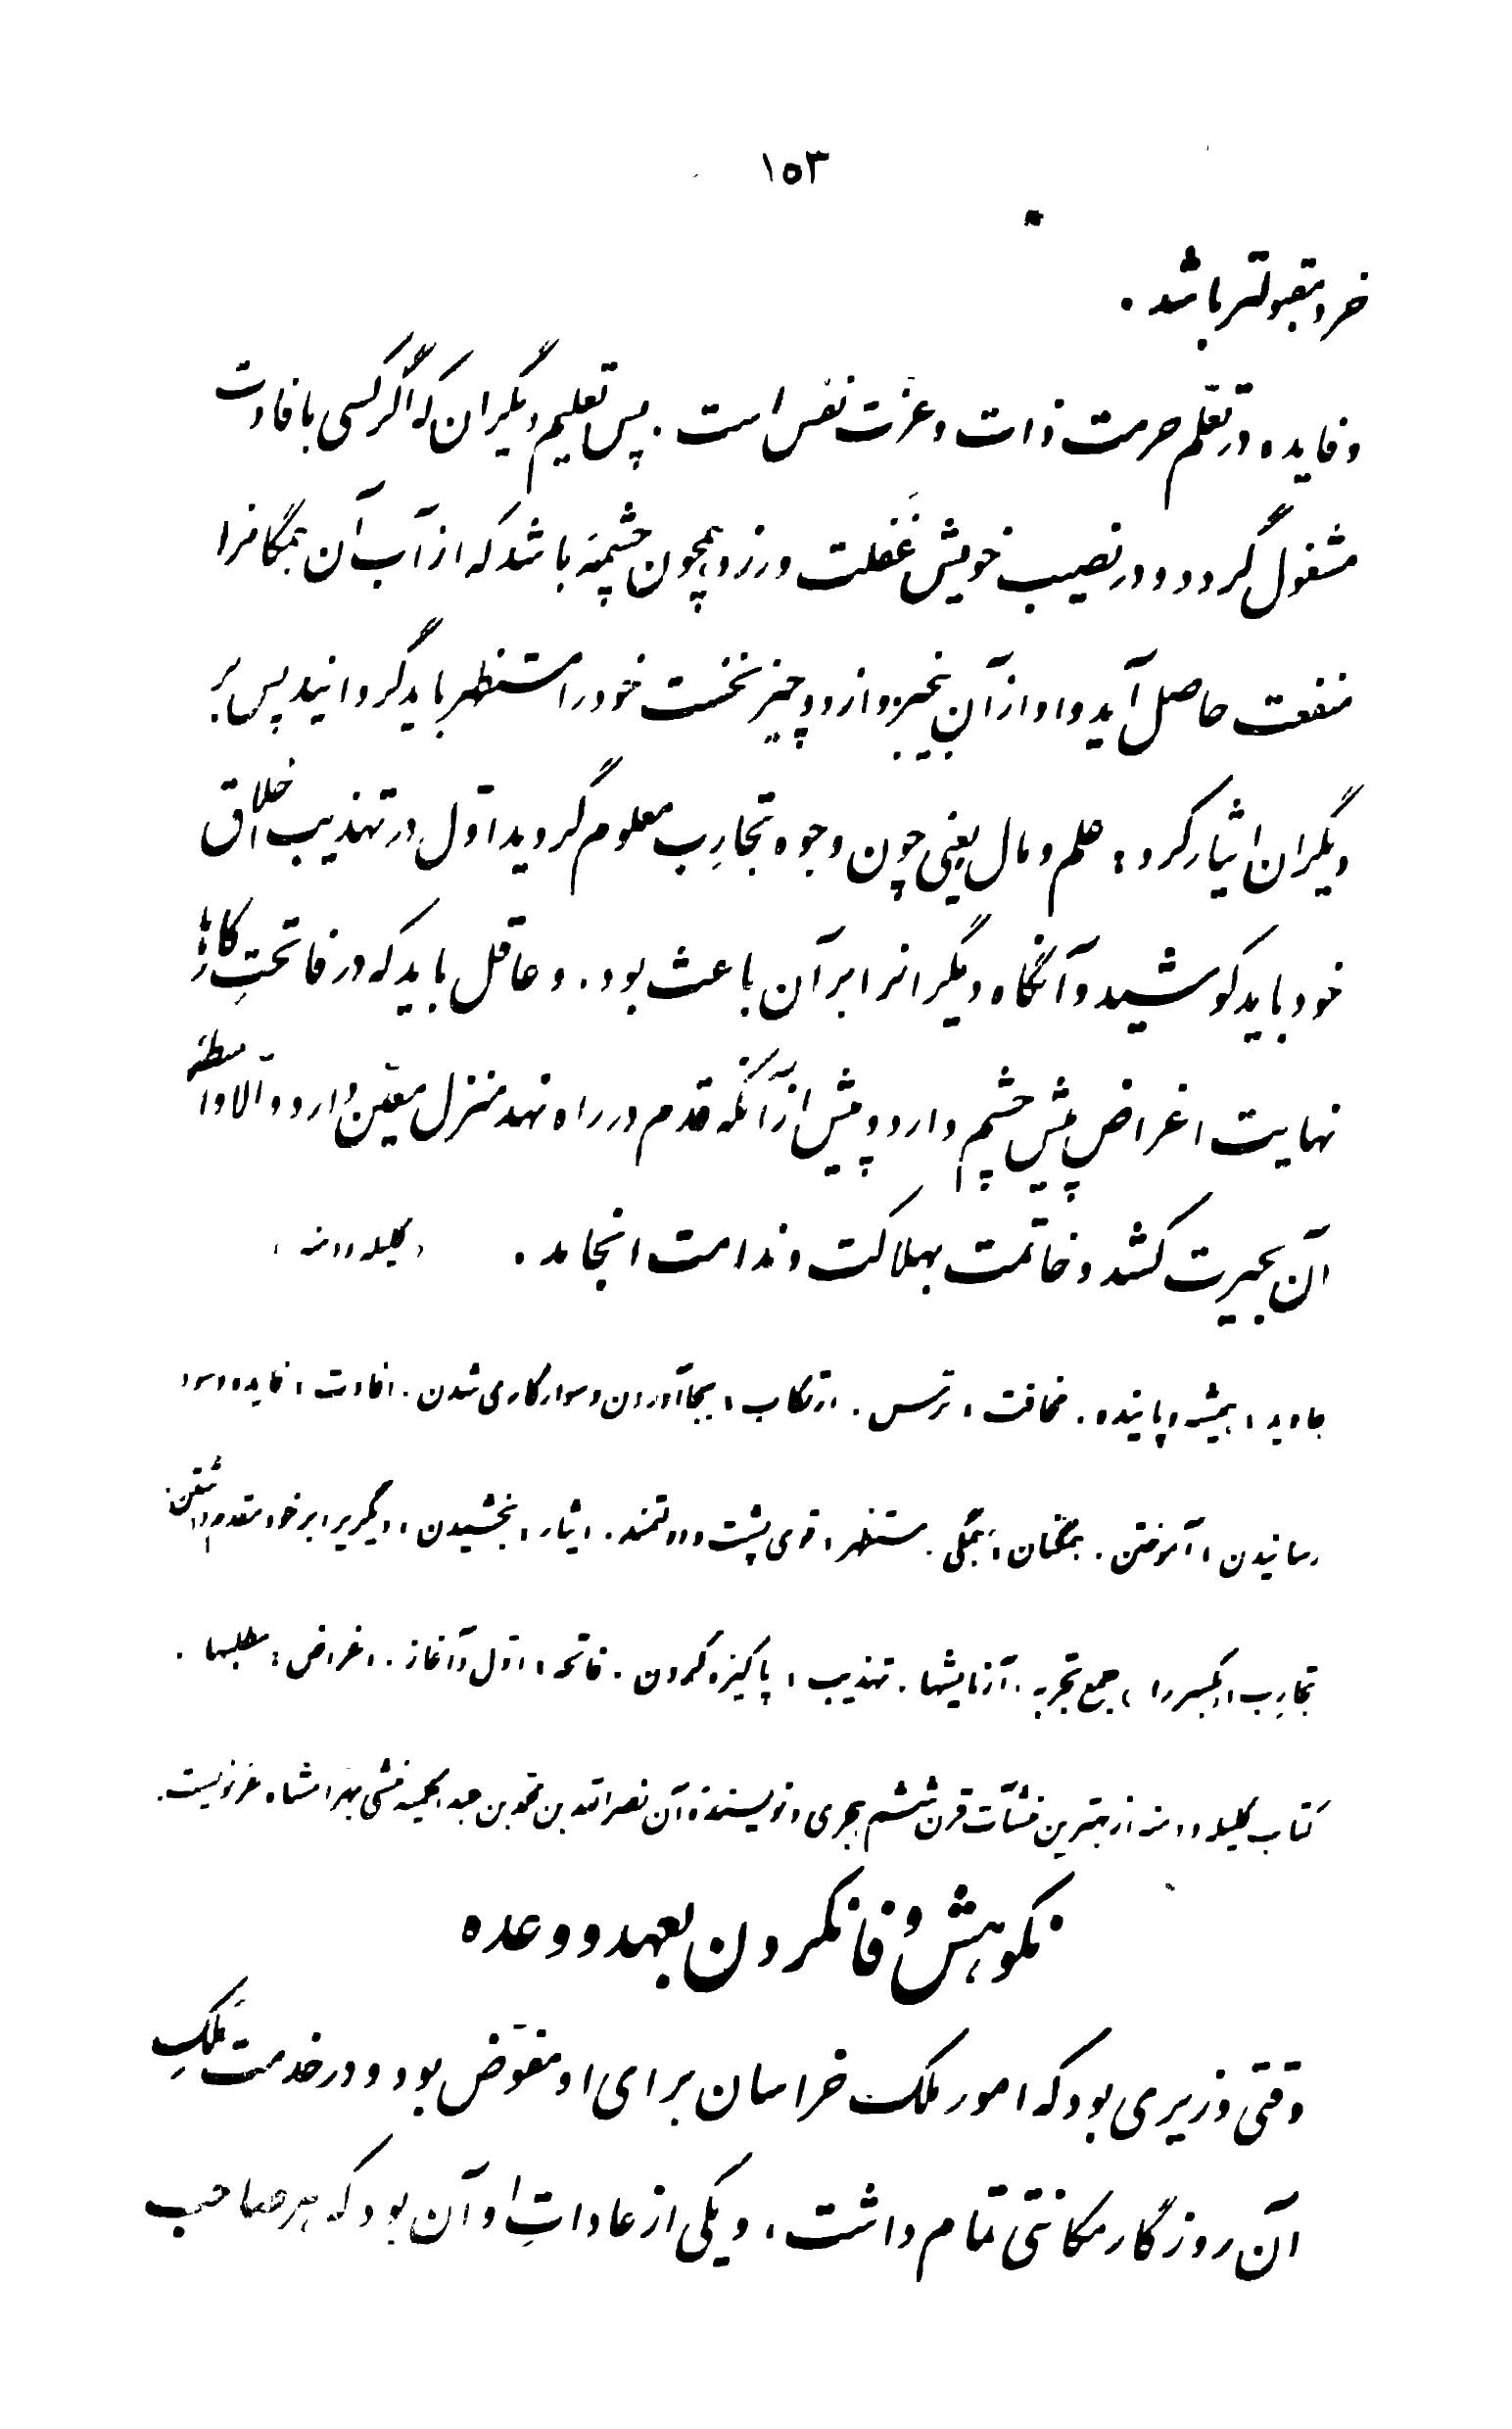 ۱۵۳
خرد مقبولتر باشد .
و فایده در تعلم حرمت ذات و عزّت نفس است . پس تعلیم دیگران که اگر کسی بافادت
مشغول گردد و در نصیب خویش غفلت ورزد همچون چشمهٔ باشد که از آب آن همگانرا
منفعت حاصل آید و او از آن بیخبر و از دو چیز نخست خود را مستظهر باید گردانید پس بر
دیگران ایثار کرد : علم و مال یعنی چون وجوه تجارِب معلوم گردید اوّل در تهذیب اخلاق
خود باید کوشید و آنگاه دیگرانرا بر آن باعث بود . و عاقل باید که در فاتحتِ کارها
نهایت اغراض پیش چشم دارد و پیش از آنکه قدم در راه نهد منزل معیّن دارد و الّا واسطهٔ
آن بحیرت کشد و خاتمت بهلاکت و ندامت انجامد . (کلیله و دمنه)
جاوید ، همیشه و پاینده . مخافت ، ترس . ارتکاب ، بجا آوردن و سوار کاری شدن . افادت ، فایده و سود
رسانیدن ، آموختن . همگنان ، همگی . مستظهر ، قوی پشت و دولتمند . ایثار ، بخشیدن ، دیگریرا بر خود مقدم داشتن .
تجارِب ، بکسر را ، جمع تجربه ، آزمایشها . تهذیب ، پاکیزه کردن . فاتحه ، اوّل و آغاز . اغراض : مطلبها .
کتاب کلیله و دمنه از بهترین منشآت قرن ششم هجری و نویسندهٔ آن نصرالله بن محمد بن عبدالحمید منشی بهرامشاه غزنویست .
نکوهش وفا نکردن بعهد و وعده
وقتی وزیری بود که امور ملک خراسان برای او مفوّض بود و در خدمت مَلِکِ
آن روزگار مکانتی تمام داشت ، و یکی از عاداتِ او آن بود که هر صاحب